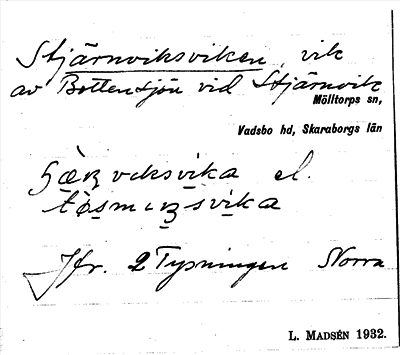 Stjärnviksviken, vik
av Bottensjön vid Stjärnvik
Mölltorps sn,
Vadsbo hd, Skaraborgs län
el.
Jfr. 2 Typningen Norra
L. MADSÉN 1932.